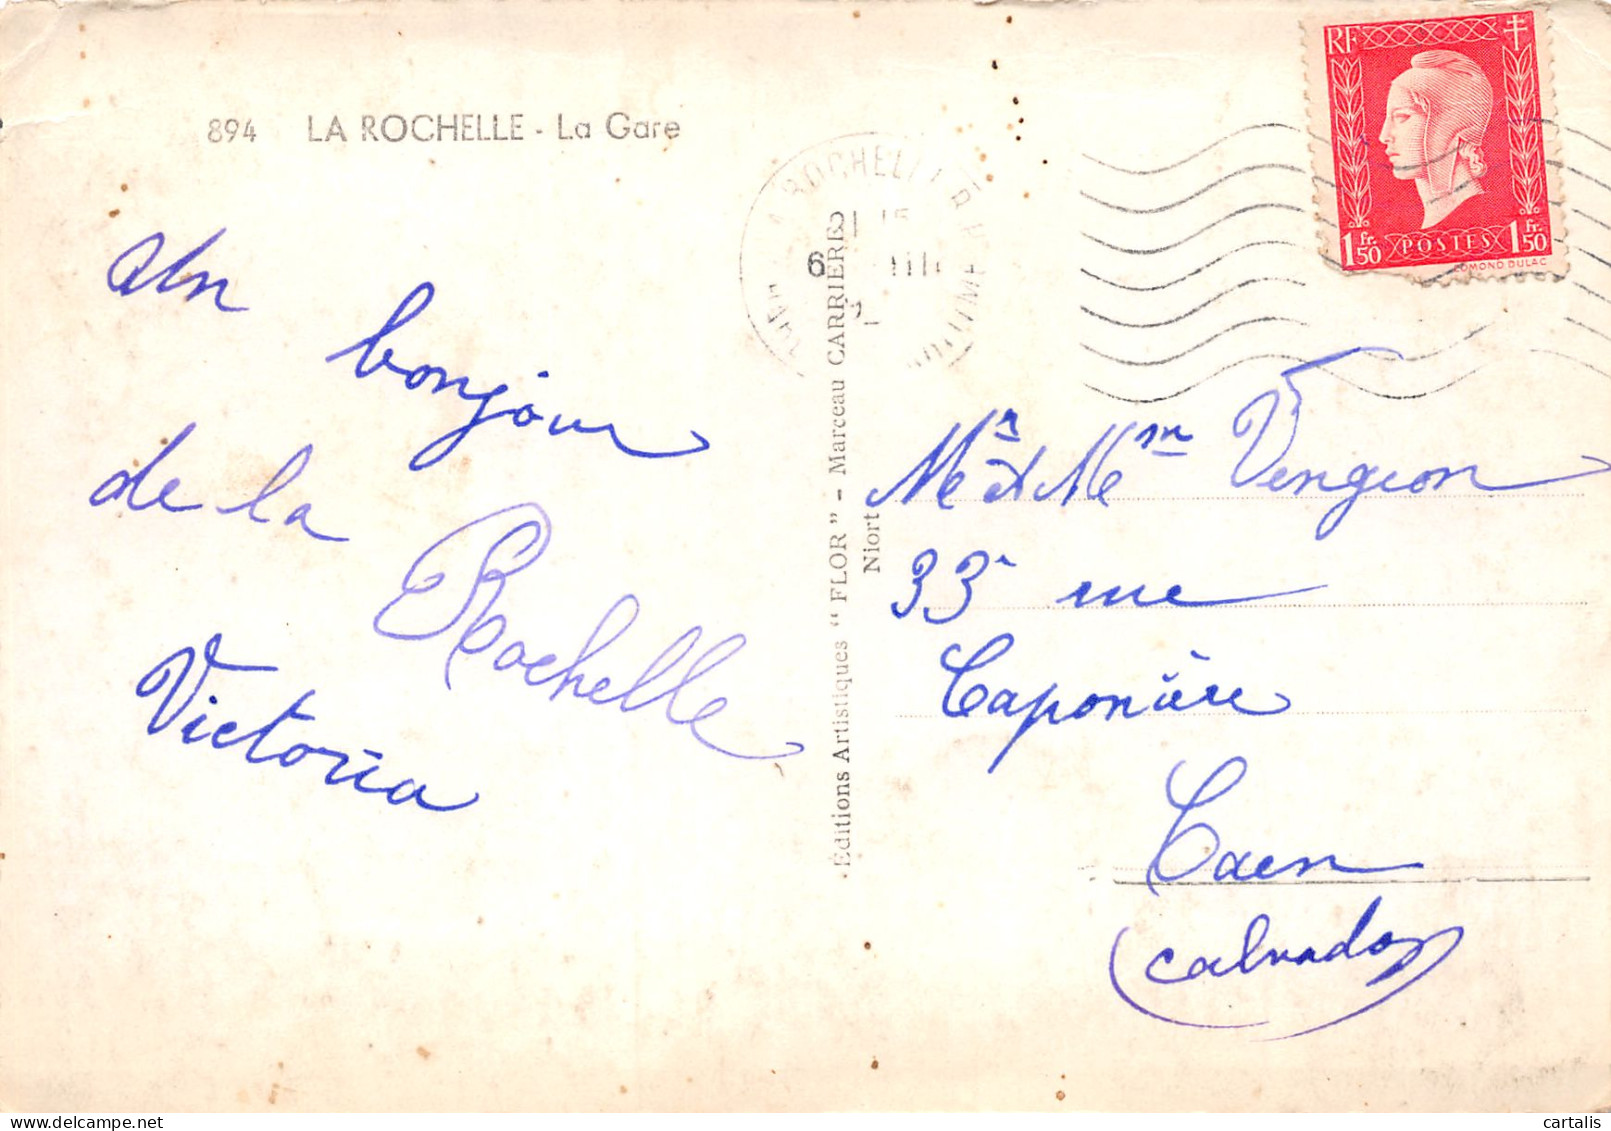 894 LA ROCHELLE - La Gare
Un
bonjour
de la
Rochelle
Victoria
Éditions Artistiques "FLOR" - Marceau CARRIERE
Niort
RF
1 fr. 50 POSTES 1 fr. 50
EDMOND DULAC
Mr et Mme Vengeon
33 rue
Caponière
Caen
Calvados
cartalis